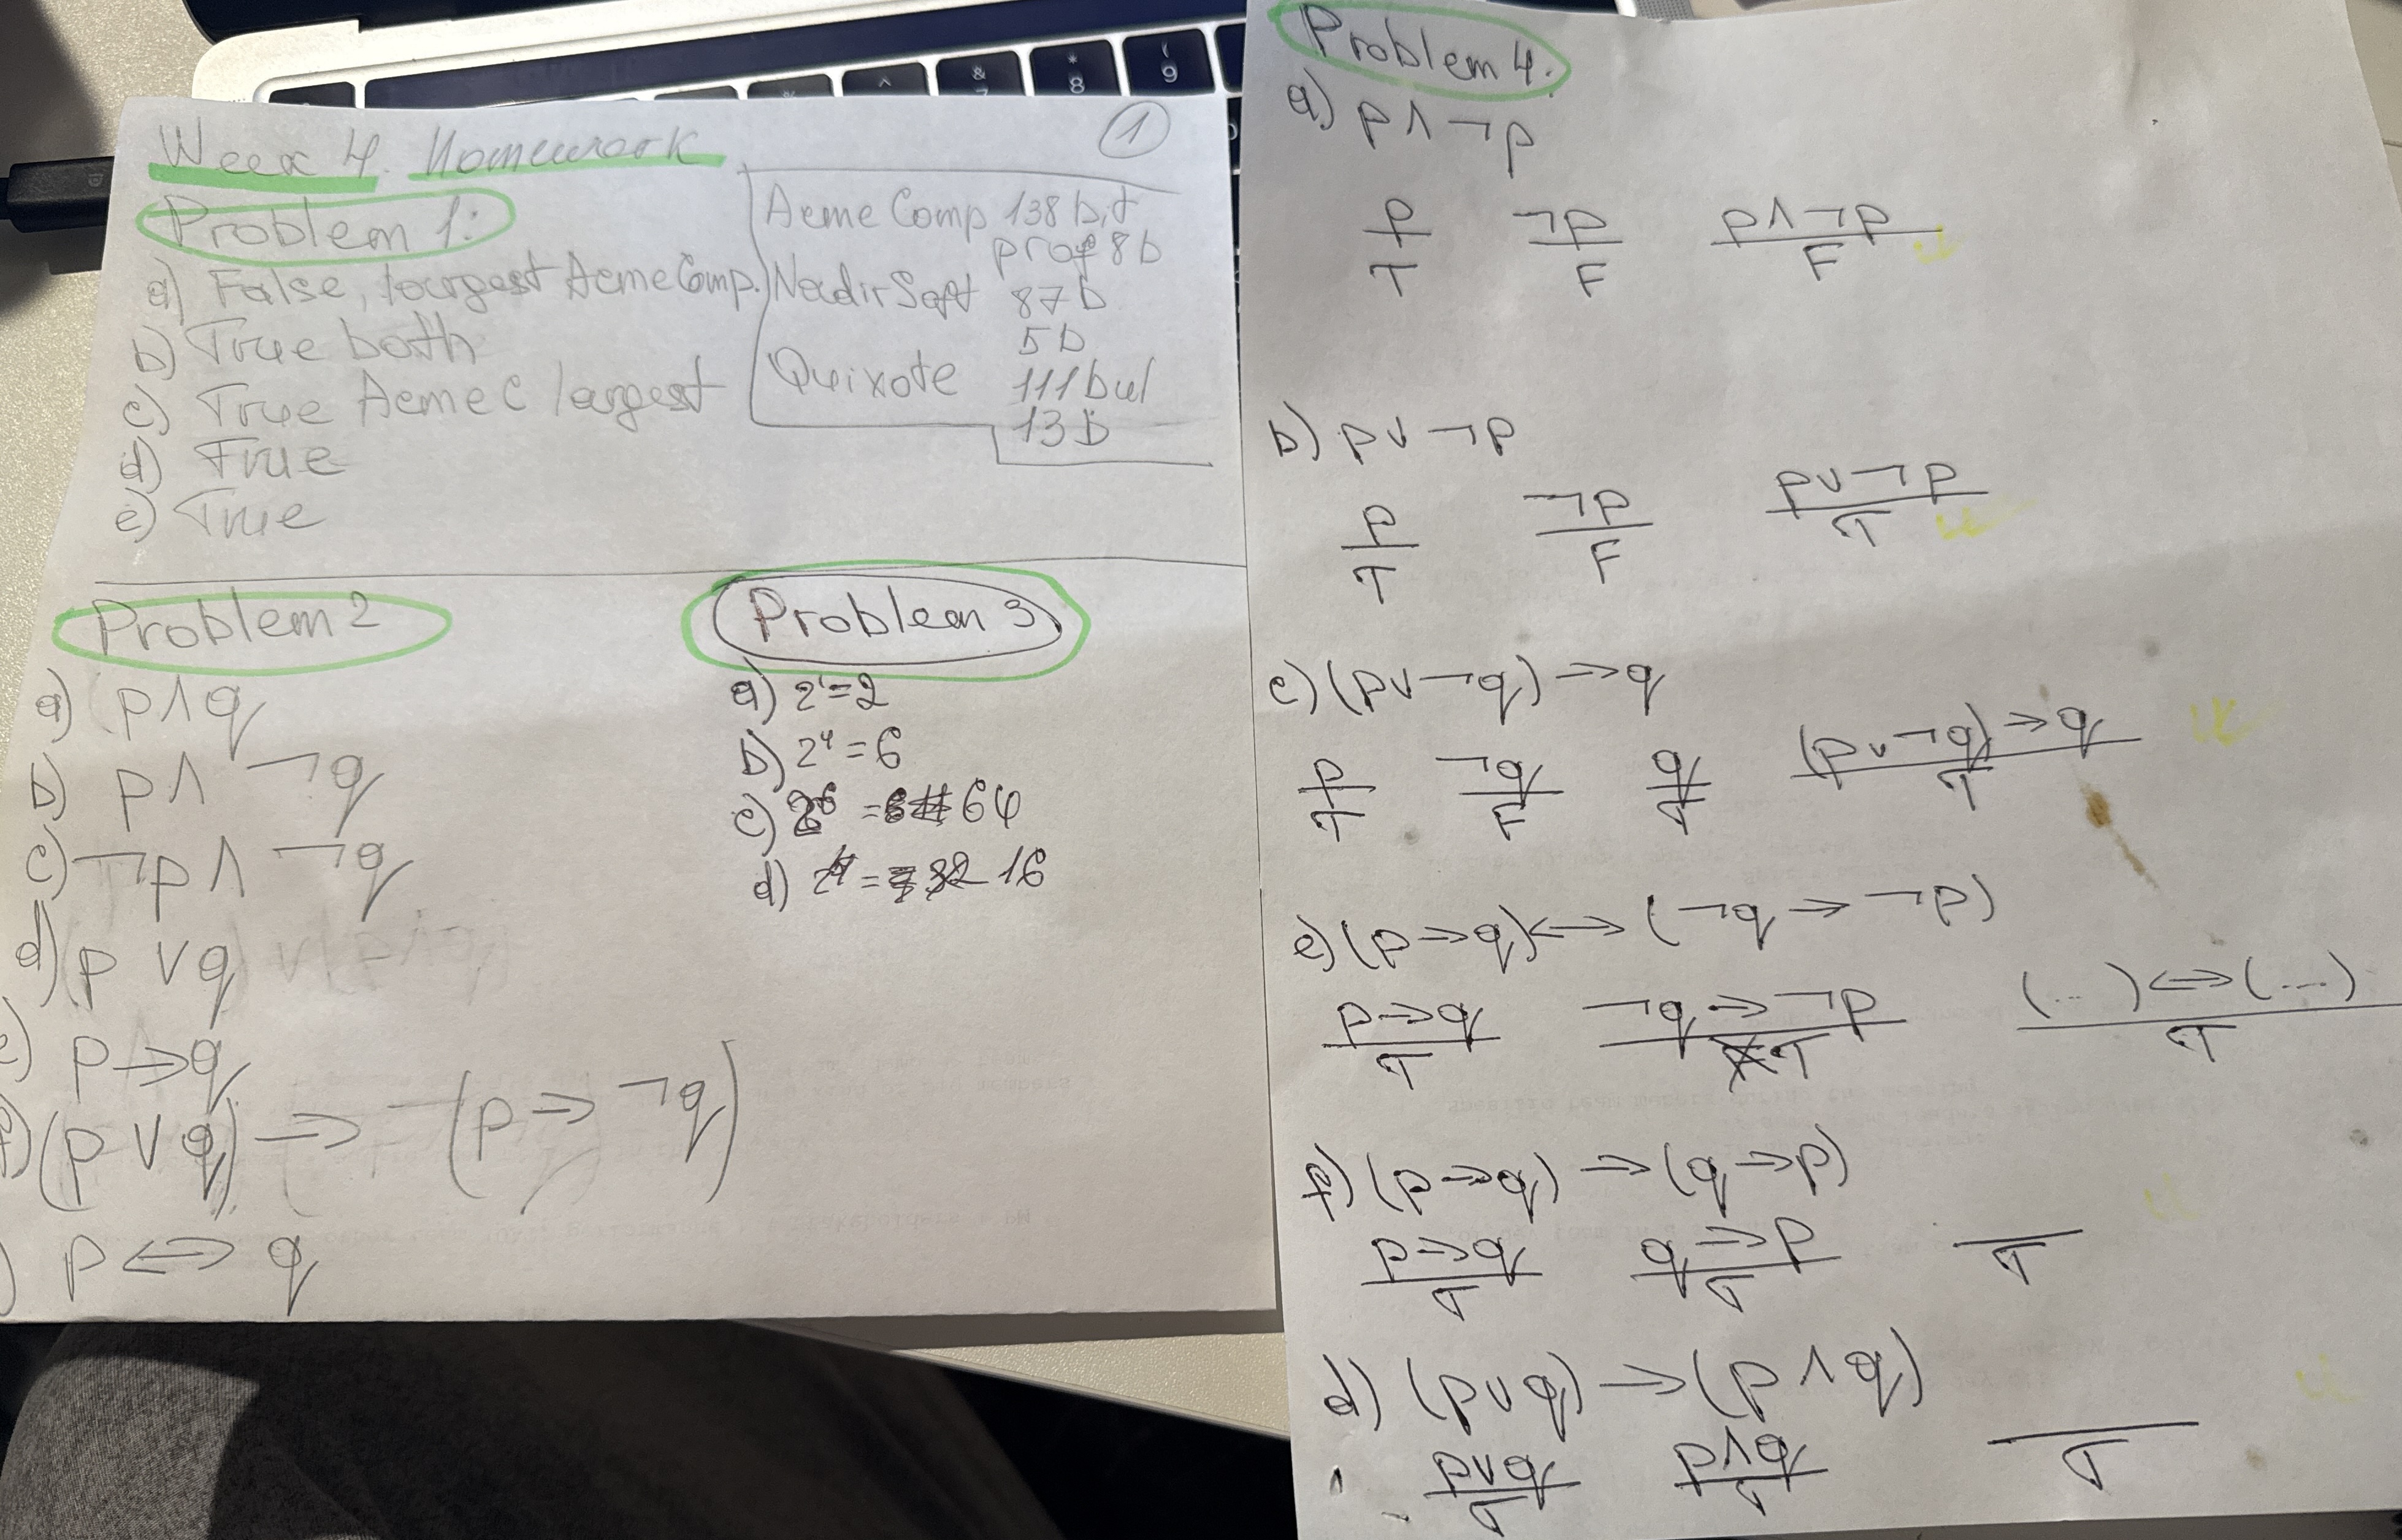 Week 4. Homework
1
Problem 1:
a) False, largest Acme Comp.
b) True both
c) True Acme C largest
d) True
e) True
Acme Comp 138 bit
prof 8 b
Nadir Soft 87 b
5 b
Quixote 111 bul
13 b
Problem 2
a) p ∧ q
b) p ∧ ¬q
c) ¬p ∧ ¬q
d) (p ∨ q)
e) p → q
f) (p ∨ q) → ¬(p → ¬q)
) p ↔ q
Problem 3
a) 2¹ = 2
b) 2⁴ = 6
c) 2⁶ = 64
d) 2⁴ = 16
Problem 4.
a) p ∧ ¬p
p ¬p p ∧ ¬p
T F F
b) p ∨ ¬p
p ¬p p ∨ ¬p
T F T
c) (p ∨ ¬q) → q
p ¬q q (p ∨ ¬q) → q
T F T T
e) (p → q) ↔ (¬q → ¬p)
p → q ¬q → ¬p (...) ↔ (...)
T T T
f) (p → q) → (q → p)
p → q q → p
T T T
d) (p ∨ q) → (p ∧ q)
p ∨ q p ∧ q
T T T
& 7
* 8
( 9
^